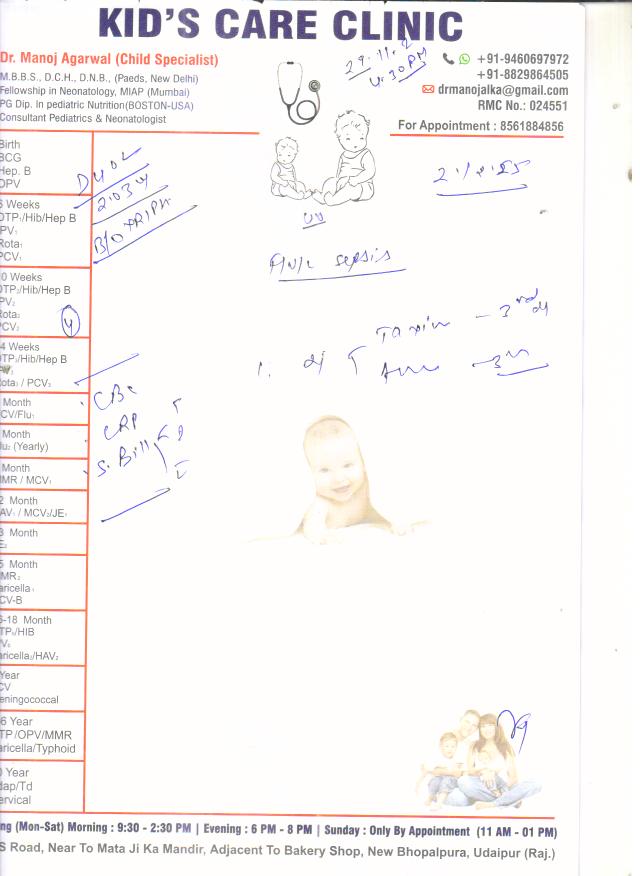 KID'S CARE CLINIC
Dr. Manoj Agarwal (Child Specialist)
M.B.B.S., D.C.H., D.N.B., (Paeds, New Delhi)
Fellowship in Neonatology, MIAP (Mumbai)
PG Dip. In pediatric Nutrition(BOSTON-USA)
Consultant Pediatrics & Neonatologist
29.11.2
4.30PM
+91-9460697972
+91-8829864505
drmanojalka@gmail.com
RMC No.: 024551
For Appointment : 8561884856
Birth
BCG
Hep. B
OPV
6 Weeks
DTP1/Hib/Hep B
PV1
Rota1
PCV1
0 Weeks
DTP2/Hib/Hep B
PV2
ota2
CV2
4 Weeks
TP3/Hib/Hep B
ota3 / PCV3
Month
CV/Flu1
Month
lu2 (Yearly)
Month
MR / MCV1
2 Month
AV1 / MCV2/JE1
3 Month
E2
5 Month
MMR2
aricella1
CV-B
6-18 Month
TP1/HIB
V2
aricella2/HAV2
Year
CV
eningococcal
6 Year
TP /OPV/MMR
aricella/Typhoid
0 Year
dap/Td
ervical
DUOL
F/U/C sepsis
1.
Taxim - 3rd
CBC
CRP
S. Bill
ng (Mon-Sat) Morning : 9:30 - 2:30 PM | Evening : 6 PM - 8 PM | Sunday : Only By Appointment (11 AM - 01 PM)
S Road, Near To Mata Ji Ka Mandir, Adjacent To Bakery Shop, New Bhopalpura, Udaipur (Raj.)